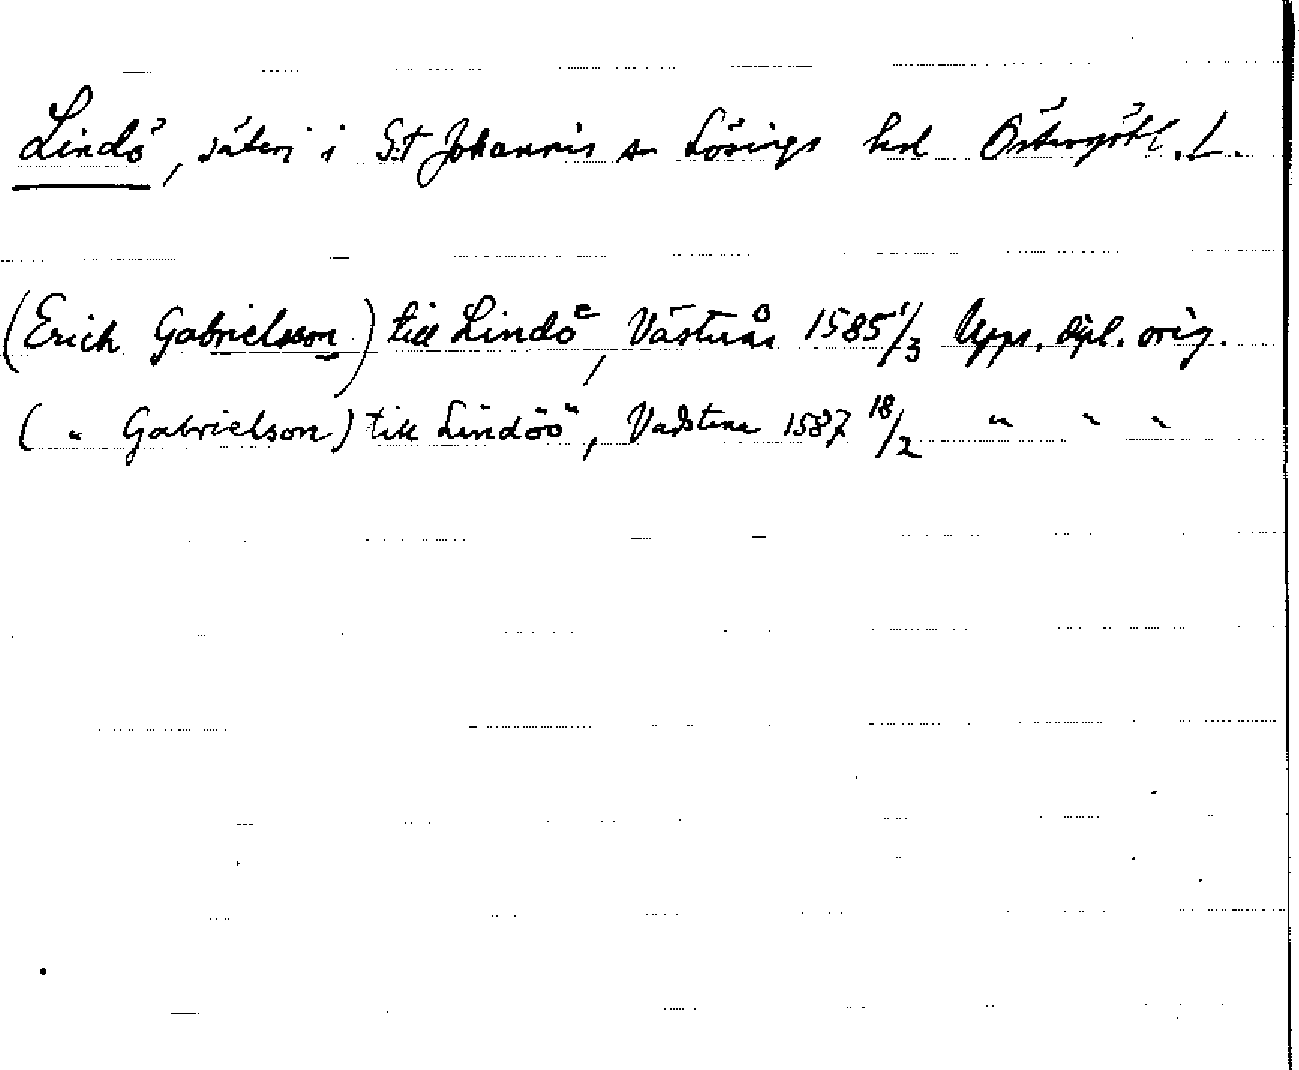 Lindö, säteri i S:t Johannis sn Lösings hd Östergötl. L.
(Erich Gabrielsson) till Lindöe, Västerås 1585 1/3 Upps. dipl. orig.
( " Gabrielson) till Lindöö, Vadstena 1587 18/2 " " "